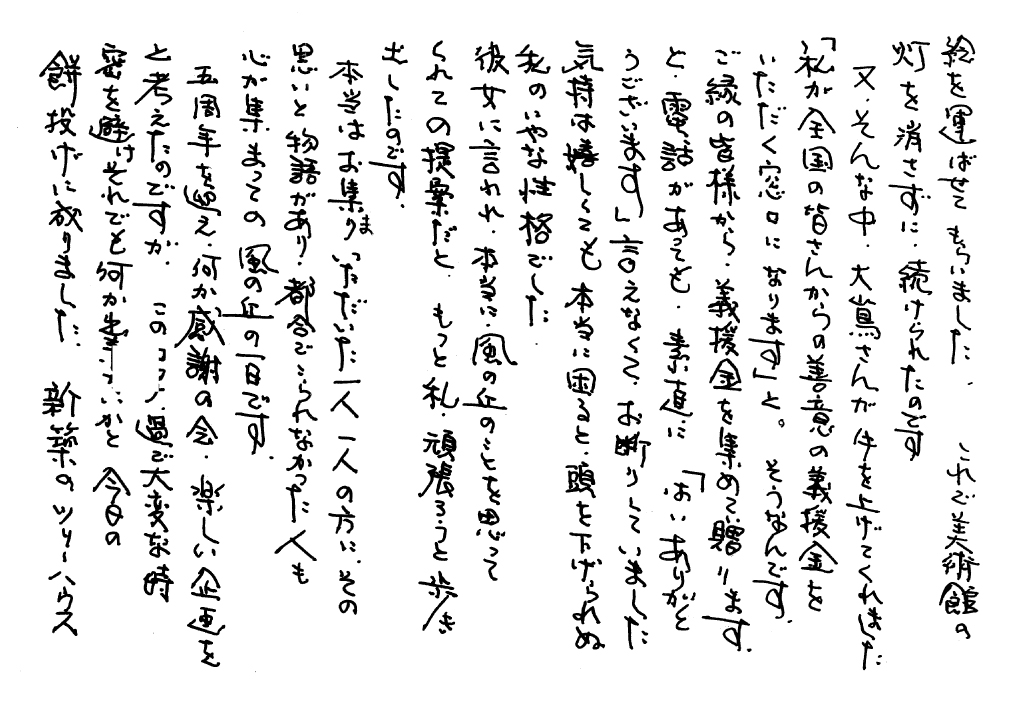 絵を運ばせてもらいました、 これで美術館の
灯を消さずに、続けられたのです
又、そんな中、大蔦さんが手を上げてくれました
「私が全国の皆さんからの善意の義援金を
いただく窓口になります」と。そうなんです、
ご縁の皆様から、義援金を集めて贈ります、
と、電話があっても、素直に「はいありがと
うございます」言えなくて、お断りしていました
気持は嬉しくても本当に困ると、頭を下げられぬ
私のいやな性格でした
彼女に言われ、本当に、風の丘のことを思って
られての提案だと、もっと私、頑張ろうと歩き
出したのです、
本当はお集りまいただいた一人一人の方に、その
思いと物語があり、都合でこられなかった人も
心が集まっての風の丘の一日です、
五周年を迎え、何か感謝の会、楽しい企画を
と考えたのですが、このコロナ過で大変な時
密を避けそれでも何か出来ないかと今日の
餅投げに成りました、新築のツリーハウス